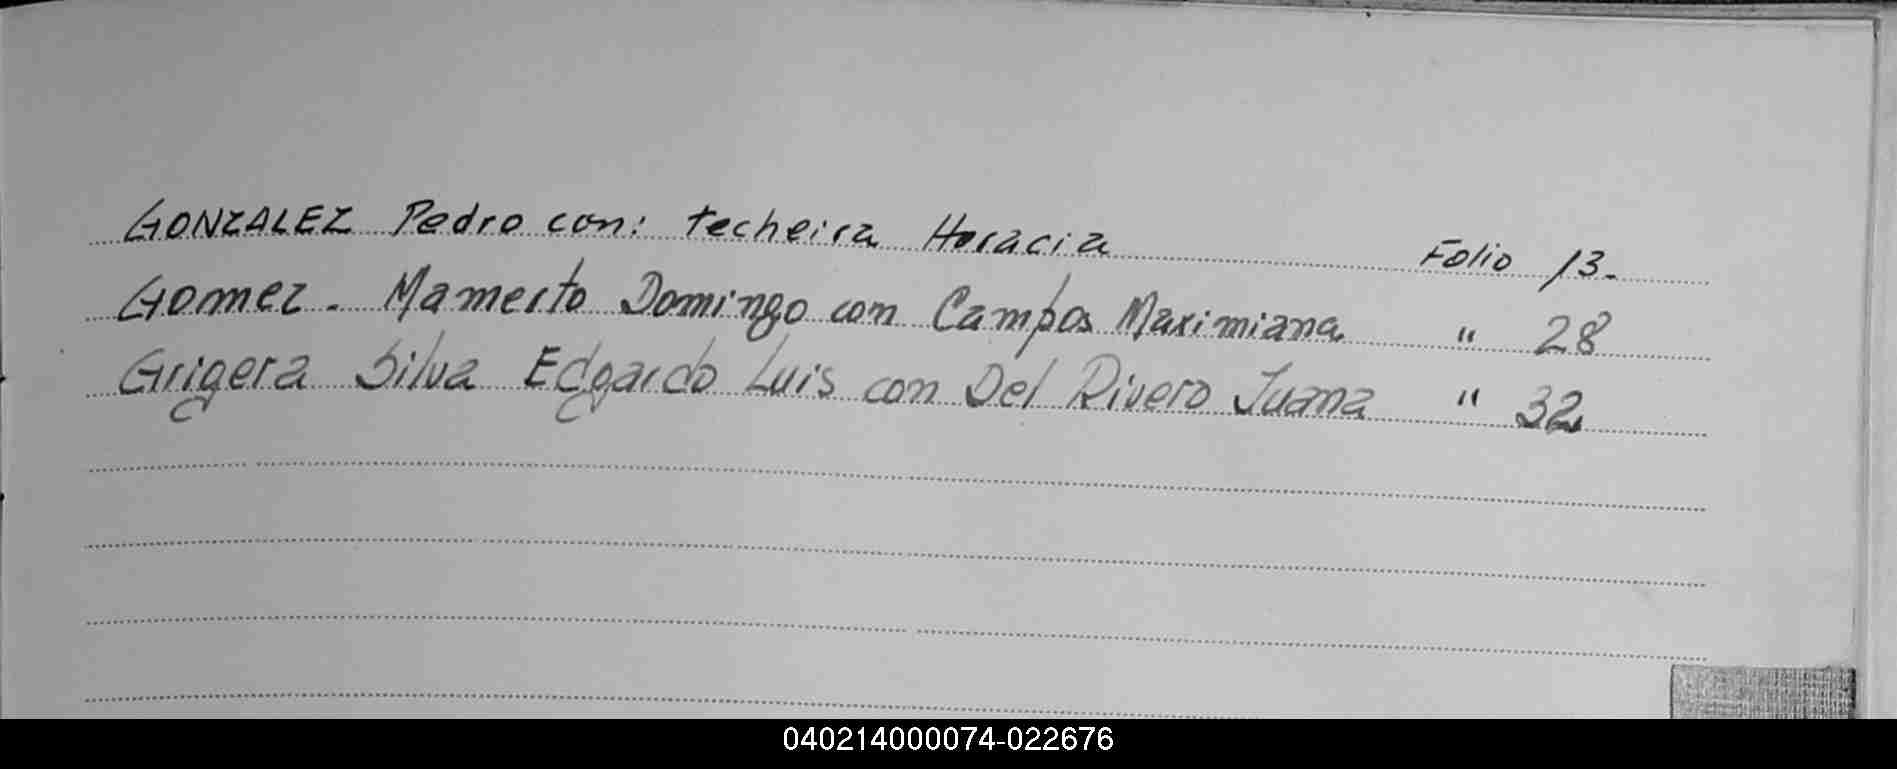 GONZALEZ Pedro con: Techeira Horacia Folio 13.
Gomez. Mamerto Domingo con Campos Maximiana " 28
Grigera Silva Edgardo Luis con Del Rivero Juana " 32
040214000074-022676